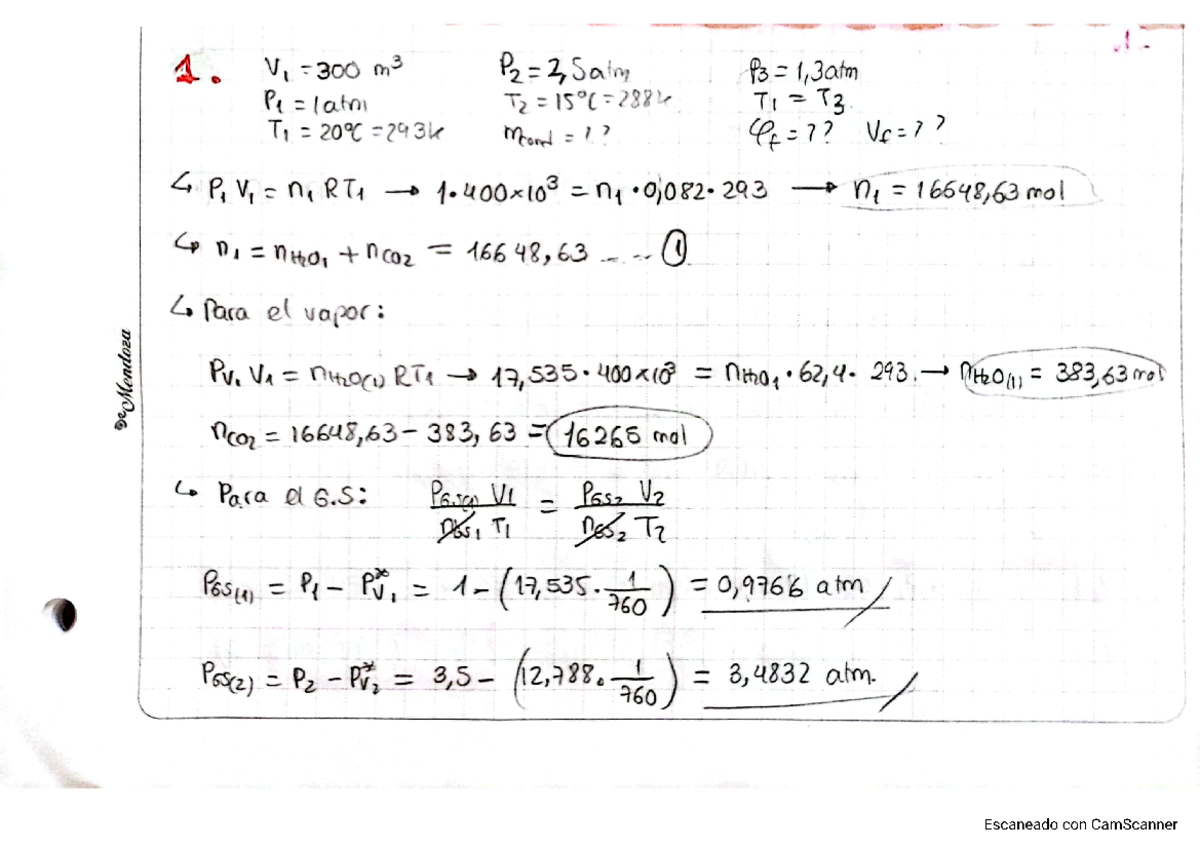 1.
1. V₁ = 300 m³ P₂ = 2,5 atm P₃ = 1,3 atm
P₁ = 1 atm T₂ = 15°C = 288 k T₁ = T₃
T₁ = 20°C = 293k mcond = ?? φf = ?? Vf = ??
↳ P₁ V₁ = n₁ R T₁ → 1·400×10³ = n₁·0,082·293 → n₁ = 16648,63 mol
↳ n₁ = nH₂O₁ + nCO₂ = 16648,63 ..... ①
↳ Para el vapor:
Pv₁ V₁ = nH₂O(1) R T₁ → 17,535·400×10³ = nH₂O₁·62,4·293. → nH₂O(1) = 383,63 mol
nCO₂ = 16648,63 – 383,63 = 16265 mol
↳ Para el G.S: PG.S(1) V₁ / nGS₁ T₁ = PGS₂ V₂ / nGS₂ T₂
PGS(1) = P₁ – Pv₁* = 1 – (17,535·1/760) = 0,9766 atm
PGS(2) = P₂ – Pv₂* = 3,5 – (12,788·1/760) = 3,4832 atm.
De Mendoza
Escaneado con CamScanner